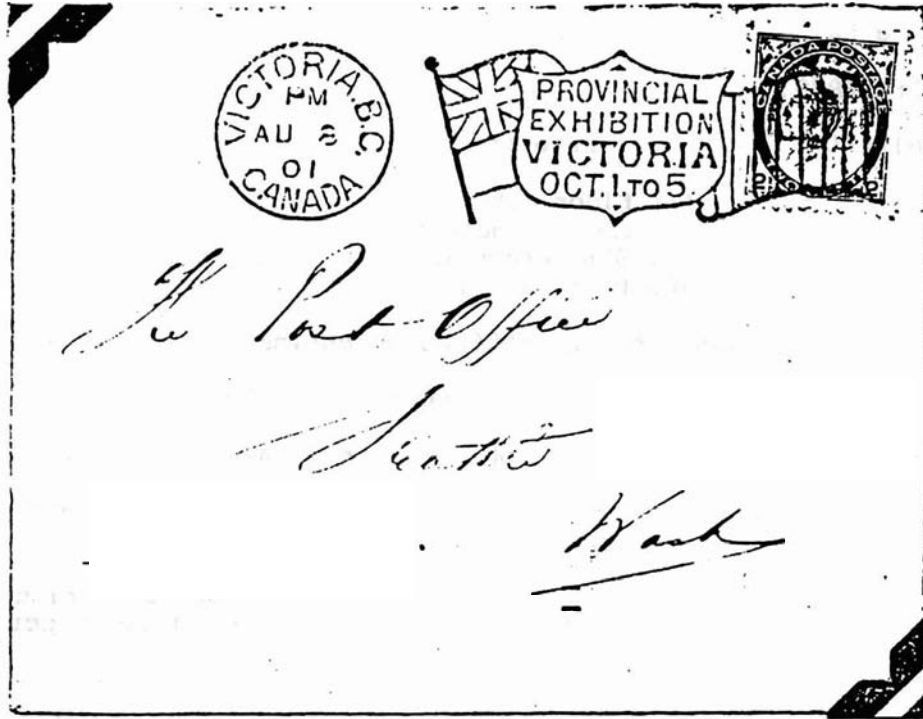 VICTORIA, B.C.
PM
AU 8
01
CANADA
PROVINCIAL
EXHIBITION
VICTORIA
OCT. 1. TO 5.
CANADA POSTAGE
2 2
The Post Office
Seattle
Wash